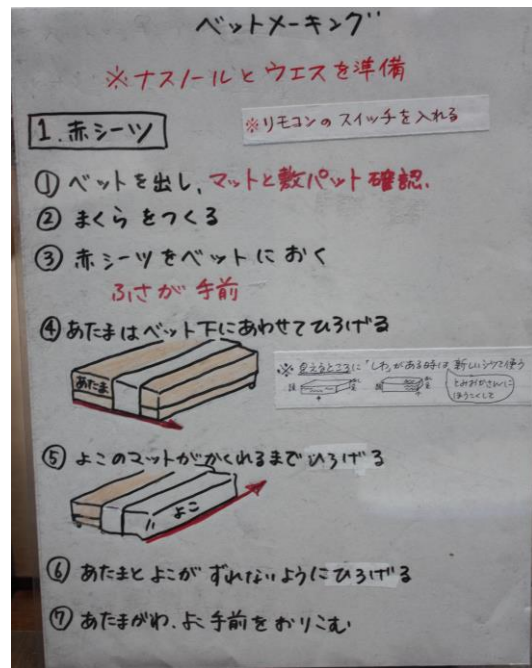 ベットメーキング
※ナスノールとウエスを準備
1. 赤シーツ
※リモコンのスイッチを入れる
① ベットを出し、マットと敷パット確認.
② まくらをつくる
③ 赤シーツをベットにおく
ふさが手前
④ あたまはベット下にあわせてひろげる
あたま
※見えるところに「しわ」がある時は新しいシーツを使う
とみおかさんに
ほうこくして
⑤ よこのマットがかくれるまでひろげる
よこ
⑥ あたまとよこがずれないようにひろげる
⑦ あたまがわ、よこ手前をおりこむ